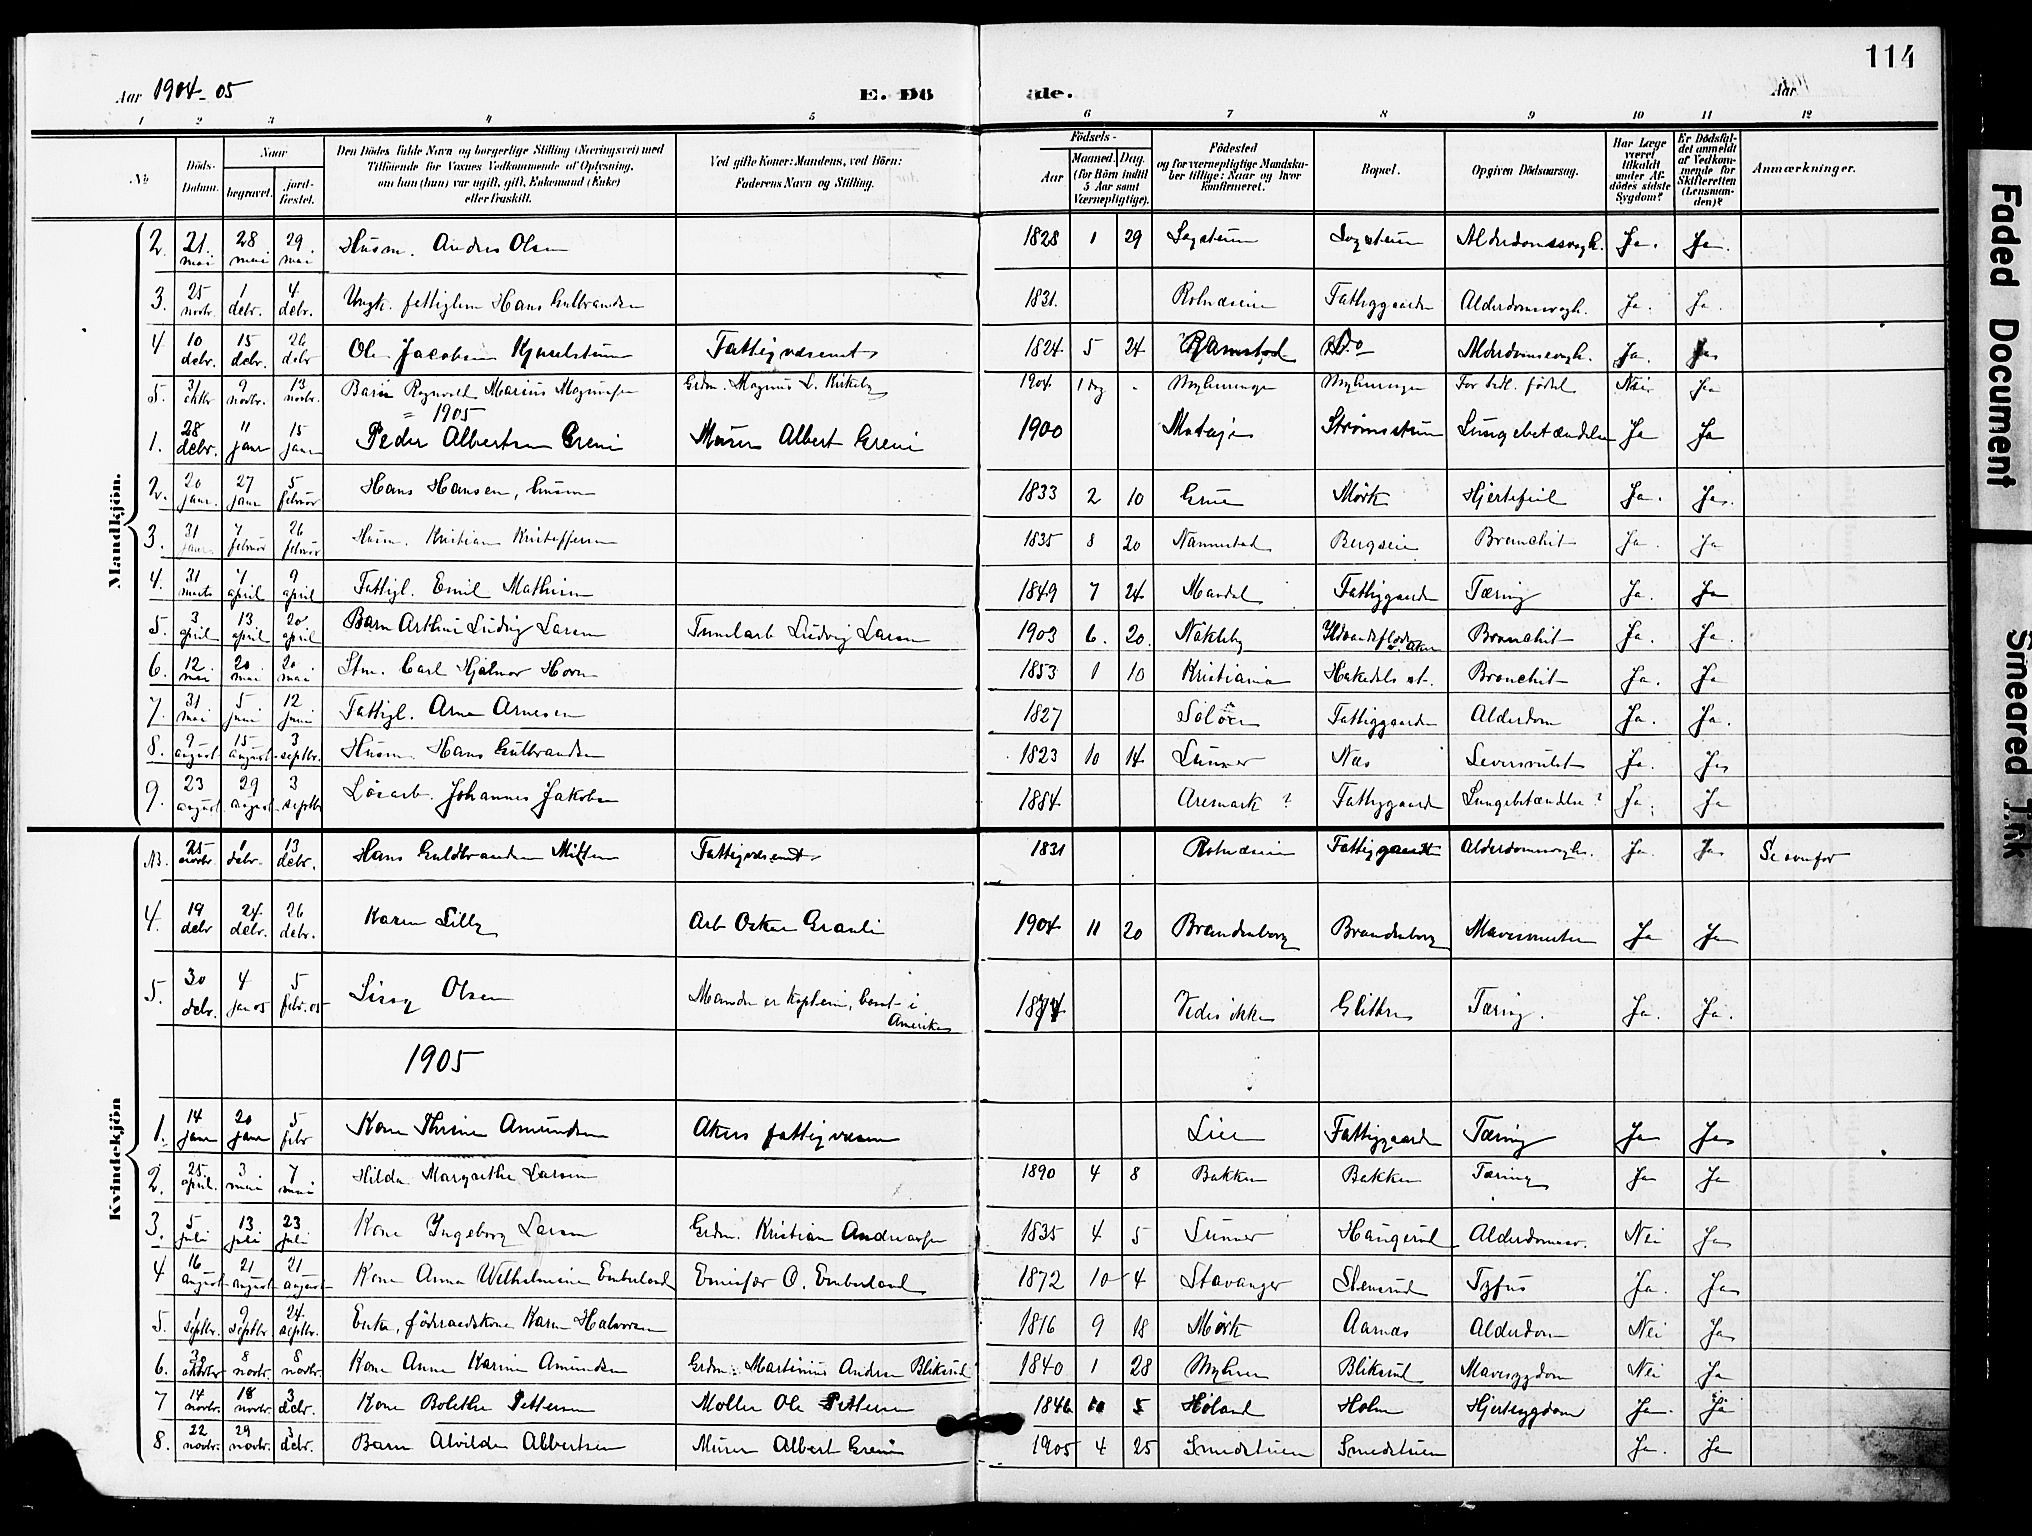 114
Aar 1904-05
E. Döde.
Aar
1 2 3 4 5 6 7 8 9 10 11 12
No
Döds-Datum.
Naar
begravet.
jord-fæstet.
Den Dödes fulde Navn og borgerlige Stilling (Næringsvei) med Tilföiende for Voxnes Vedkommende af Oplysning, om han (hun) var ugift, gift, Enkemand (Enke) eller fraskilt.
Ved gifte Koner: Mandens, ved Börn: Faderens Navn og Stilling.
Födsels-
Aar
Maaned. Dag. (for Börn indtil 5 Aar samt Værnepligtige).
Födested og for værnepligtige Mandskaber tillige: Naar og hvor konfirmeret.
Bopæl.
Opgiven Dödsaarsag.
Har Læge været tilkaldt under Afdödes sidste Sygdom?
Er Dödsfaldet anmeldt af Vedkommende for Skifteretten (Lensmanden)?
Anmærkninger.
Mandkjön.
2. 21 mai 28 mai 29 mai Husm. Andres Olsen 1828 1 29 Alderdomssvagh. Ja. Ja.
3. 25 novbr. 1 debr. 4 debr. Ungk. fattiglem Hans Gulbrandsen 1831. Rotnæseie Fattiggaarden Alderdomssvagh. Ja. Ja.
4 10 debr. 15 debr. 26 debr Ole Jacobsen Fattigvæsenet 1824 5 24 Ramstad Do Alderdomssvagh. Ja. Ja
5. 31 oktbr 9 novbr. 13 novbr. Barn Ragnvald Marius Magnussen Grdm. Magnus L. Kirkeby 1904 1 dg - For tidl. födt Nei Ja
= 1905
1. 28 debr. 11 janr 15 janr Peder Albertsen Greni Murer Albert Greni 1900 Strømsstuen Lungebetændelse Ja Ja
2. 20 janr. 27 janr 5 februar Hans Hansen, husm 1833 2 10 Grue Mørk Hjertefeil Ja. Ja.
3. 31 janr. 7 februar 26 februar Husm. Kristian Kristoffersen 1835 8 20 Nannestad Bergseie Bronchit Ja. Ja
4. 31 marts 7 april 9 april Fattigl. Emil Mathisen 1849 7 24 Mandal Fattiggaarden Tæring Ja. Ja
5. 3 april 13 april 20 april Barn Arthur Ludvig Larsen Tunelarb Ludvig Larsen 1903 6. 20. Nakleby Aker Bronchit Ja. Ja.
6. 12 mai 20 mai 20 mai Stm. Carl Hjalmar Horn 1853 1 10 Kristiania Hakedals st. Bronchit Ja. Ja
7. 31 mai 5 juni 12 juni Fattigl. Arne Arnesen 1827 Soløer Fattiggaarden Alderdom Ja. Ja.
8. 9 august 15 august 3 septbr. Husm. Hans Gulbrandsen 1823 10 14 Lunner Næs Leversvulst Ja. Ja
9. 23 august 29 august 3 septbr Løsarb. Johannes Jakobsen 1884 Aremark ? Fattiggaarden Lungebetændelse ? Ja. Ja
Kvindekjön
NB. 25 novbr. 1 debr. 13 debr. Hans Guldbrandsen Fattigvæsenet 1831 Rotnæseie Fattiggaarden Alderdomssvagh. Ja. Ja Se ovenfor
4. 19 debr 24 debr. 26 debr. Karen Lilly Arb Oskar Granli 1904 11 20 Brandenborg Brandenborg Ja Ja
5. 30 debr. 4 jan 05 5 febr. 05 Lissy Olsen Manden er kaptein, bosat i Amerika 1874 Vides ikke Glittre Tæring. Ja. Ja.
1905
1. 14 janr 20 janr 5 febr Kone Thrine Amundsen Akers fattigvæsen Lier Fattiggaarden Tæring Ja Ja
2. 25 april. 3 mai 7 mai Hilda Margrethe Larsen 1890 4 8 Bakken Bakken Tæring Ja Ja
3. 5 juli 13 juli 23 juli Kone Ingeborg Larsen Grdm. Kristian Andreassen 1835 4 5 Lunner Haugerud Alderdomssv. Nei Ja
4 16 august 21 august 21 august Kone Anna Wilhelmine Emberland Emisær O. Emberland 1872 10 4 Stavanger Stensrud Tyfus Ja. Ja
5. 1 septbr. 9 septbr 24 septbr. Enke, föderaadskone Karen Halvorsen 1816 9 18 Mørk Aarnæs Alderdom Nei Ja
6. oktober 8 novbr. 8 novbr. Kone Anne Karine Amundsen Grdm. Martinius Andersen Bliksrud 1840 1 28 Myhren Bliksrud Mavesygdom Nei Ja
7 14 novbr. 18 novbr. 3 debr. Kone Bolethe Pettersen Møller Ole Pettersen 1846 10 5 Høland Holm Hjertesygdom Ja. Ja
8. 22 novbr. 29 novbr. 3 debr. Barn Alvilde Albertsen Murer Albert Greni 1905 4 25 Smedstuen Smedstuen Ja. Ja
Faded Document
Smeared Ink